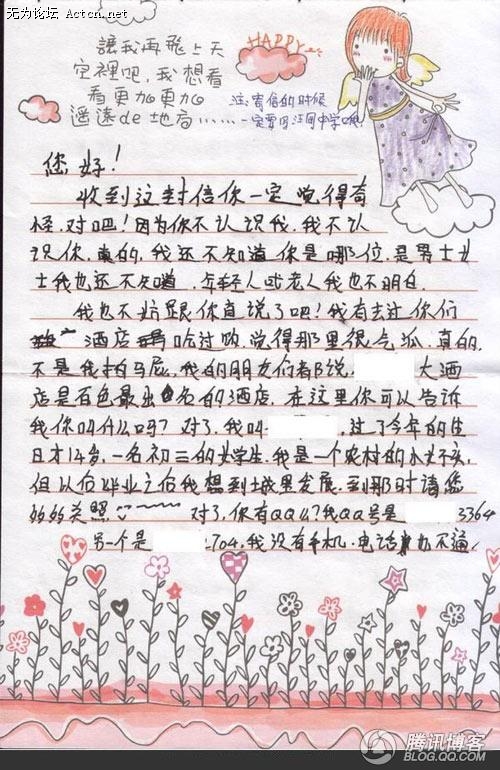 无为论坛 Actcn.net
讓我再飛上天
空裡吧，我想看
看更加更加
遥遠de地方……
HAPPY
注：寄信的时候
一定要写汪甸中学哦！
您好！
收到这封信你一定觉得奇
怪，对吧！因为你不认识我，我不认
识你，真的，我还不知道你是哪位，是男士女
士我也还不知道，年轻人或老人我也不明白。
我也不妨跟你直说了吧！我有去过你们
酒店吃过购，觉得那里很气派，真的，
不是我拍马屁，我的朋友们都说 大酒
店是百色最出名的酒店，在这里你可以告诉
我你叫什么吗？对了，我叫 ，过了今年的生
日才14岁，一名初三的女学生，我是一个农村的小女孩，
但以后毕业之后我想到城里发展，到那时请您
多多关照 对了，你有QQ么？我QQ号是 3364
另一个是 2704，我没有手机，电话打不通，
腾讯博客
BLOG.QQ.COM